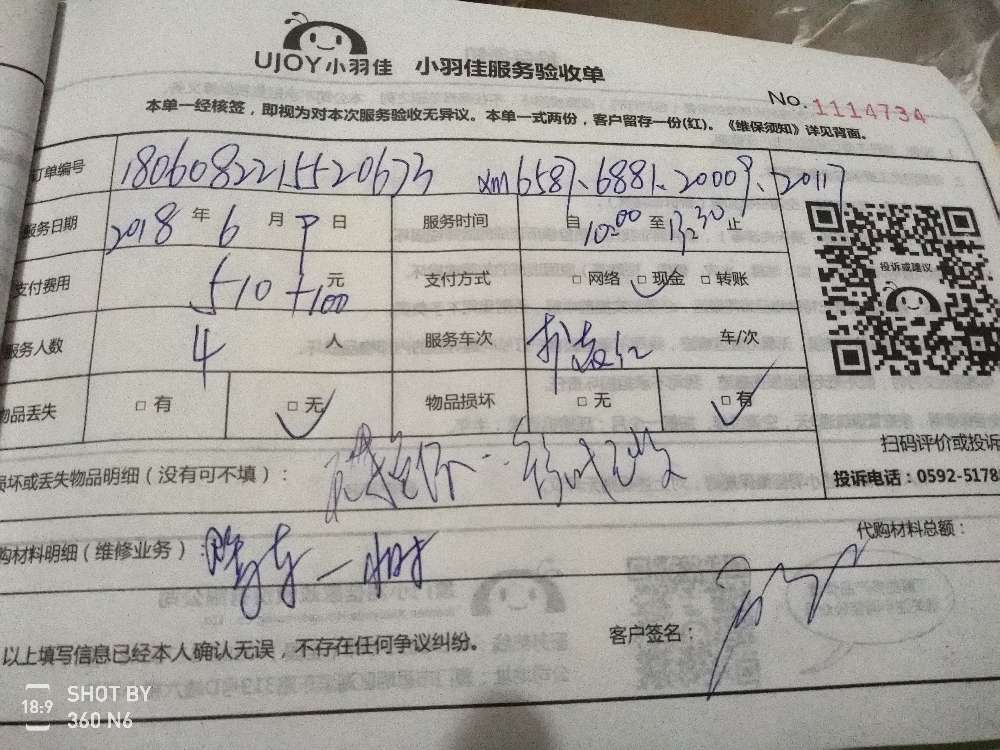 UJOY小羽佳 小羽佳服务验收单
No.1114734
本单一经核签，即视为对本次服务验收无异议。本单一式两份，客户留存一份(红)。《维保须知》详见背面。
订单编号 1806082215520673 xm6587、6881、20009、20117
服务日期 2018年6月9日 服务时间 自10:00至13:30止
支付费用 510+100元 支付方式 □网络 □现金 □转账
投诉或建议
服务人数 4人 服务车次 车/次
物品丢失 □有 □无 物品损坏 □无 □有
扫码评价或投诉
损坏或丢失物品明细（没有可不填）：
投诉电话：0592-5178
购材料明细（维修业务）：
代购材料总额：
以上填写信息已经本人确认无误，不存在任何争议纠纷。
客户签名：
18:9 SHOT BY
360 N6